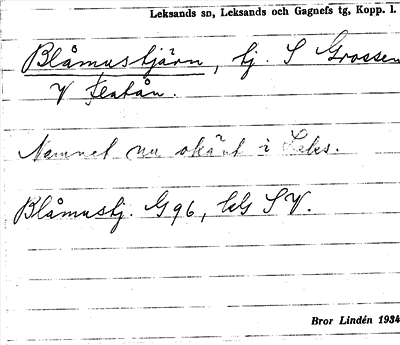 Leksands sn, Leksands och Gagnefs tg, Kopp. l.
Blåmustjärn, tj. S Grossen
V Flatån.
Namnet nu okänt i Leks.
Blåmustj. G 96, bl S V.
Bror Lindén 1934